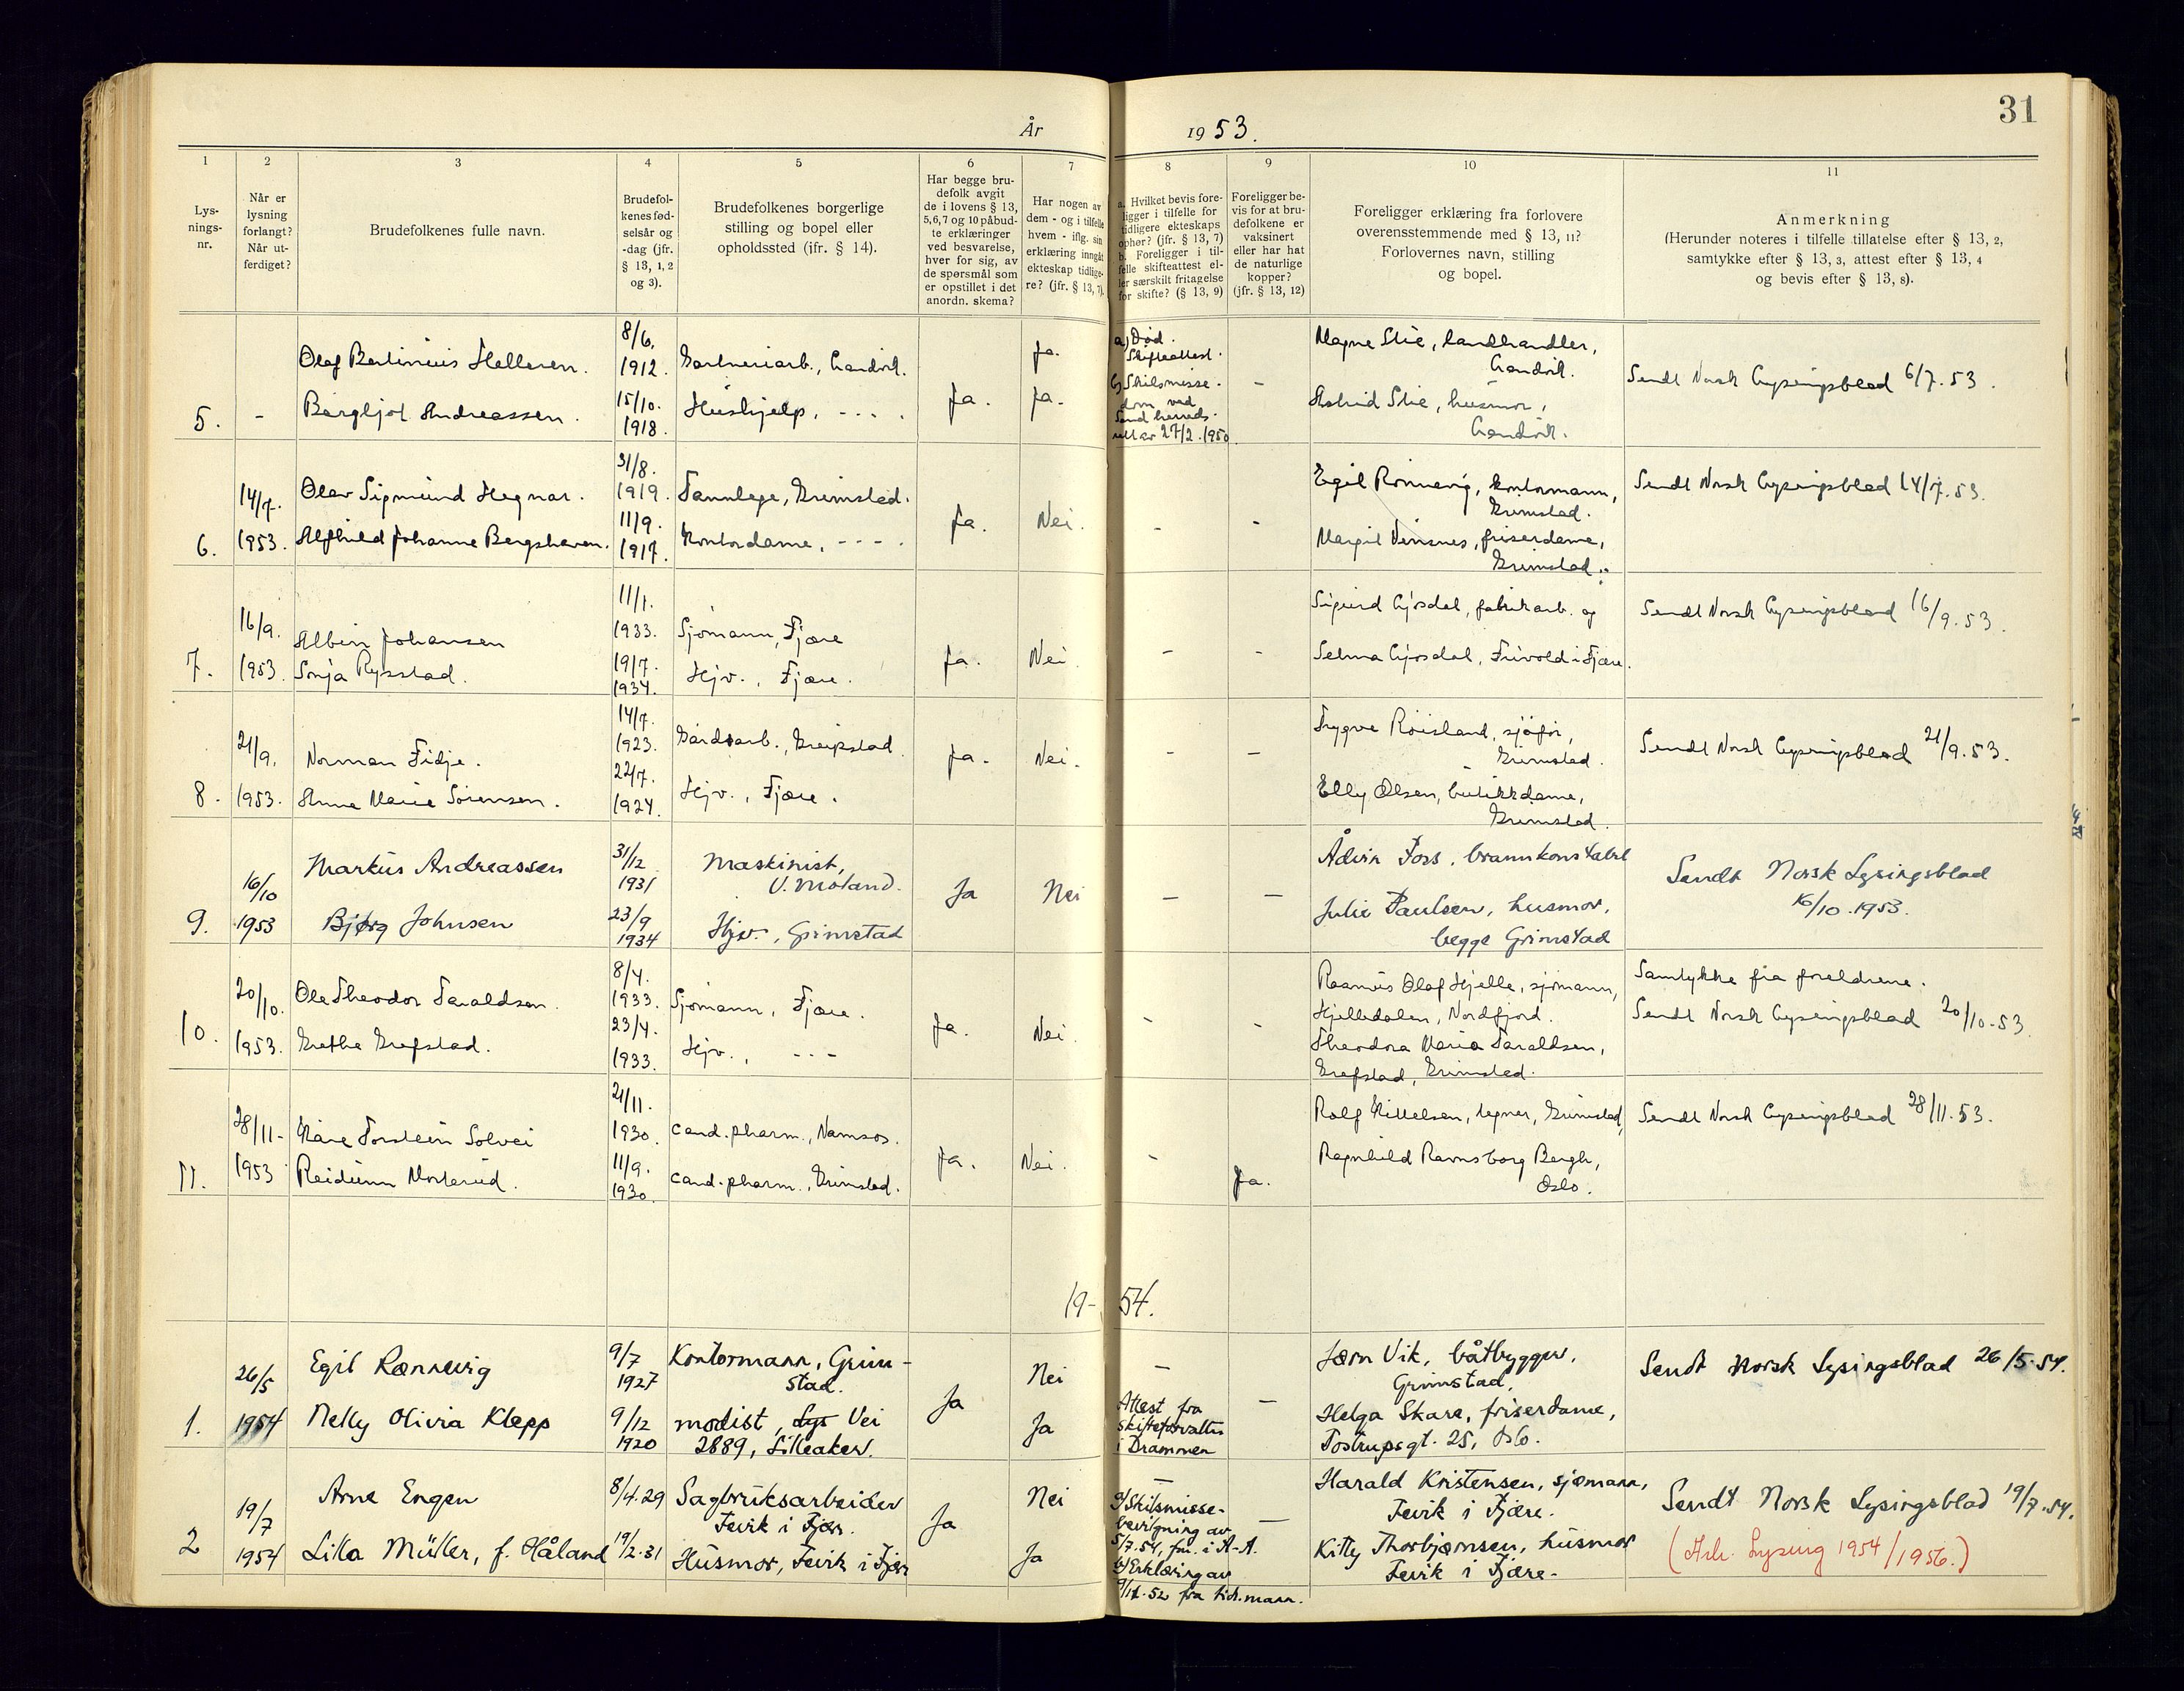 31
År 1953.
1 2 3 4 5 6 7 8 9 10 11
Lysnings-
nr.
Når er
lysning
forlangt?
Når ut-
ferdiget?
Brudefolkenes fulle navn.
Brudefol-
kenes fød-
selsår og
-dag (jfr.
§ 13, 1, 2
og 3).
Brudefolkenes borgerlige
stilling og bopel eller
opholdssted (ifr. § 14).
Har begge bru-
defolk avgit
de i lovens § 13,
5,6,7 og 10 påbud-
te erklæringer
ved besvarelse,
hver for sig, av
de spørsmål som
er opstillet i det
anordn. skema?
Har nogen av
dem - og i tilfelle
hvem - iflg. sin
erklæring inngåt
ekteskap tidlige-
re? (jfr. § 13, 7).
a. Hvilket bevis fore-
ligger i tilfelle for
tidligere ekteskaps
ophør? (jfr. § 13, 7)
b. Foreligger i til-
felle skifteattest el-
ler særskilt fritagelse
for skifte? (§ 13, 9)
Foreligger be-
vis for at bru-
defolkene er
vaksinert
eller har hat
de naturlige
kopper?
(jfr. § 13, 12)
Foreligger erklæring fra forlovere
overensstemmende med § 13, 11?
Forlovernes navn, stilling
og bopel.
Anmerkning
(Herunder noteres i tilfelle tillatelse efter § 13, 2,
samtykke efter § 13, 3, attest efter § 13, 4
og bevis efter § 13, 8).
5. -
Olaf Bertinius Helleren.
Bergljot Andreassen.
8/6.
1912.
15/10.
1918.
Gartneriarb., Landvik.
Hushjelp, - - - .
Ja.
Ja.
Ja.
a) Død.
Skifteattest.
b) Skilsmisse-
dom ved
Sand herreds-
rett av 27/2.1950.
-
Magne Stie, landhandler,
Landvik.
Astrid Stie, husmor,
Landvik.
Sendt Norsk Lysingsblad 6/7.53.
6.
14/7.
1953.
Olav Sigmund Hegnar.
Alfhild Johanne Bergshaven.
31/8.
1919.
11/9.
1917.
Tannlege, Grimstad.
Kontordame, - - - .
Ja.
Nei.
-
-
Egil Rönnevig, kontormann,
Grimstad.
Margit Vensnes, friserdame,
Grimstad.
Sendt Norsk Lysingsblad 14/7.53.
7.
16/9.
1953.
Albin Johansen
Sonja Rysstad.
11/1.
1933.
19/7.
1934.
Sjömann, Fjære
Hjv., Fjære.
Ja.
Nei.
-
-
Sigurd Gjösdal, fabrikarb. og
Selma Gjösdal, Frivold i Fjære.
Sendt Norsk Lysingsblad 16/9.53.
8.
21/9.
1953.
Norman Fidje.
Anna Marie Sörensen.
14/7.
1923.
22/7.
1924.
Gårdsarb., Greipstad.
Hjv., Fjære.
Ja.
Nei.
-
-
Trygve Röisland, sjåför,
Grimstad.
Elly Olsen, butikkdame,
Grimstad.
Sendt Norsk Lysingsblad 21/9.53.
9.
16/10
1953
Markus Andreassen
Bjørg Johnsen
31/12
1931
23/9
1934
Maskinist,
V. Moland.
Hjv., Grimstad
Ja
Nei
-
-
Advin Foss, brannkonstabel
Julie Paulsen, husmor,
begge Grimstad
Sendt Norsk Lysingsblad
16/10.1953.
10.
20/10.
1953.
Ole Theodor Taraldsen.
Grethe Grefstad.
8/4.
1933.
23/4.
1933.
Sjömann, Fjære.
Hjv., - - -
Ja.
Nei.
-
-
Rasmus Olaf Hjelle, sjömann,
Hjelledalen, Nordfjord.
Theodora Maria Taraldsen,
Grefstad, Grimstad.
Samtykke fra foreldrene.
Sendt Norsk Lysingsblad 20/10-53.
11.
28/11-
1953
Kåre Torstein Solvei
Reidunn Morterud.
21/11.
1930.
11/9.
1930.
cand.pharm., Namsos.
cand.pharm., Grimstad.
Ja.
Nei.
-
Ja.
Rolf Kittelsen, tegner, Grimstad,
Ragnhild Ramsborg Bergh,
Oslo.
Sendt Norsk Lysingsblad 28/11.53.
19-54.
1.
26/5
1954
Egil Rønnevig
Nelly Olivia Klepp
9/7
1927
9/12
1920
Kontormann, Grim-
stad.
modist, Lys Vei
2889, Lilleaker.
Ja
Nei
Ja
-
Attest fra
skifteforvalter
i Drammen
-
Jørn Vik, båtbygger,
Grimstad,
Helga Skare, friserdame,
Tostrupsgt. 25, Oslo.
Sendt Norsk Lysingsblad 26/5.54.
2
19/7
1954
Arne Engen
Lilla Müller, f. Håland
8/4.29
19/2.31
Sagbruksarbeider
Fevik i Fjære.
Husmor, Fevik i Fjære
Ja
Nei
Ja
-
a) Skilsmisse-
bevilgning av
5/7.54, fm. i A-A.
b) Erklæring av
9/11.52 fra tidl.mann.
-
Harald Kristensen, sjømann,
Fevik i Fjære.
Kitty Thorbjørnsen, husmor
Fevik i Fjære-
Sendt Norsk Lysingsblad 19/7.54.
(Ark. Lysing 1954/1956.)